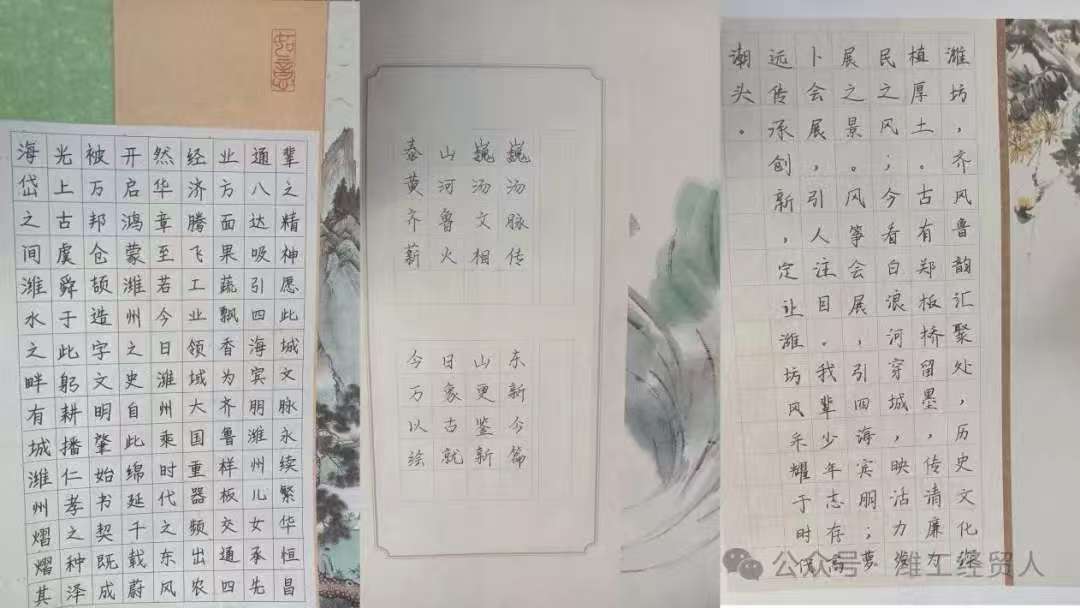 海岱之间潍水之畔有城潍州熠熠其
光上古虞舜于此躬耕播仁孝之种泽
被万邦仓颉造字文明肇始书契既成
开启鸿蒙潍州之史自此绵延千载蔚
然华章至若今日潍州乘时代之东风
经济腾飞工业领域大国重器频出农
业方面果蔬飘香为齐鲁样板交通四
通八达吸引四海宾朋潍州儿女承先
辈之精神愿此城文脉永续繁华恒昌
如意
泰山巍巍
黄河汤汤
齐鲁文脉
薪火相传
今日山东
万象更新
以古鉴今
绘就新篇
潍坊，齐风鲁韵汇聚处，历史文化
植厚土。古有郑板桥留墨，传清廉为
民之风；今看白浪河穿城，映活力
展之景。风筝会展，引四海宾朋；萝
卜会展，引人注目。我辈少年志存高
远传承创新，定让潍坊风采耀于时
潮头。
公众号 潍工经贸人